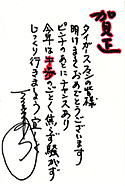 賀正
タイガースファンの皆様
明けましておめでとうございます
ピンチのあとにチャンスあり
今年は牛歩のごとく焦らず騒がず
じっくり行きましょう